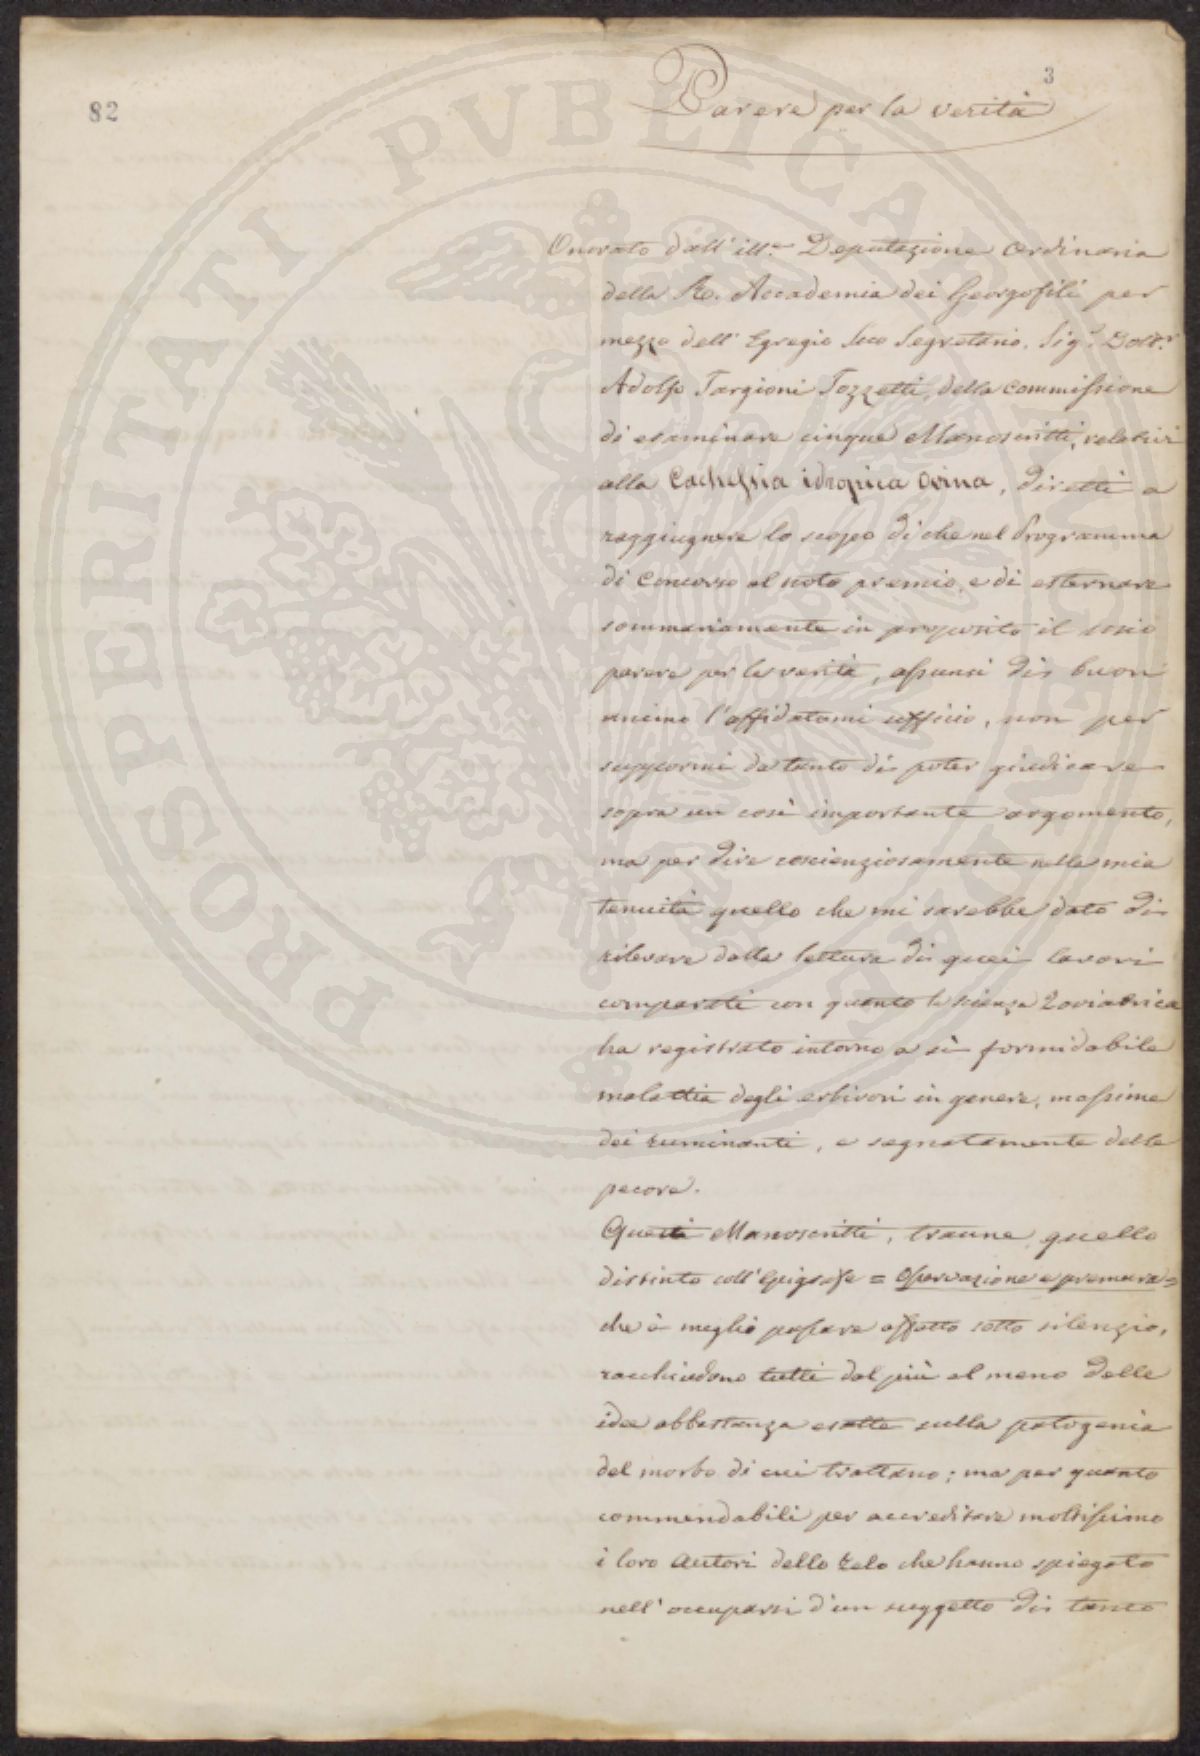 3
82
Parere per la verità
Onorato dall' ill.ma Deputazione Ordinaria
della R. Accademia dei Georgofili per
mezzo dell' Egregio suo Segretario, Sig.r Dott.r
Adolfo Targioni Tozzetti, della commissione
di esaminare cinque Manoscritti, relativi
alla Cachessia idropica Ovina, diretti a
raggiugnere lo scopo di che nel Programma
di Concorso al noto premio, e di esternare
sommariamente in proposito il mio
parere per la verità, assunsi di buon
animo l'affidatomi ufficio, non per
suppormi da tanto di poter giudicare
sopra un così importante argomento,
ma per dire coscienziosamente nella mia
tenuità quello che mi sarebbe dato di
rilevare dalla lettura di quei lavori
comparati con quanto la scienza Zoviatrica
ha registrato intorno a sì formidabile
malattia degli erbivori in genere, massime
dei ruminanti, e segnatamente delle
pecore.
Questi Manoscritti, tranne quello
distinto coll'Epigrafe = Osservazione e premura =
che è meglio passare affatto sotto silenzio,
racchiudono tutti dal più al meno delle
idee abbastanza esatte sulla patogenia
del morbo di cui trattano; ma per quanto
commendabili per accreditare moltissimo
i loro autori dello zelo che hanno spiegato
nell' occuparsi d'un suggetto di tanto
PROSPERITATI PVBLICAE AVGENDAE